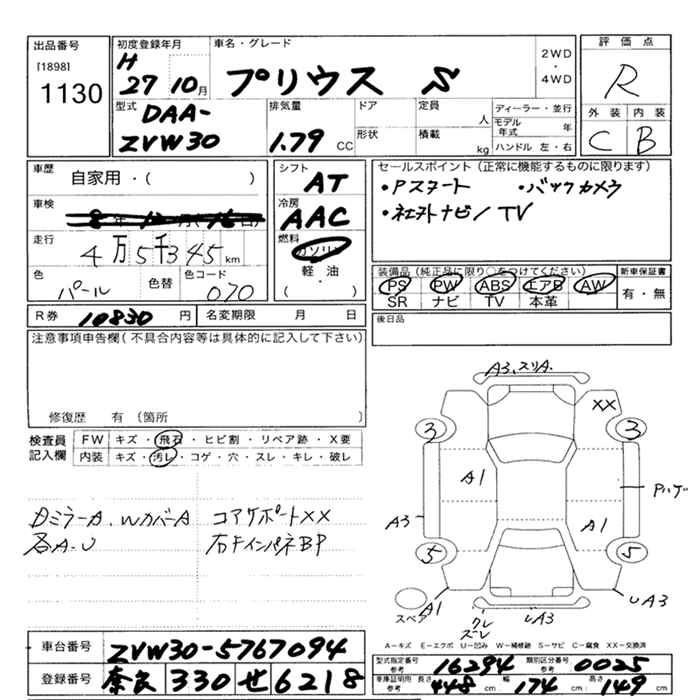 出品番号
[1898]
1130
初度登録年月
H
27 10月
車名・グレード
プリウス S
2WD
・
4WD
評価点
R
外装 内装
C B
型式
DAA-
ZVW30
排気量
1.79 CC
ドア
形状
定員
人
積載
kg
ディーラー・並行
モデル
年式 年
ハンドル 左・右
車歴
自家用・( )
車検
走行
4万5千345km
色
パール
色替
色コード
070
シフト
AT
冷房
AAC
燃料
ガソリン
軽・油
・
( )
セールスポイント(正常に機能するものに限ります)
・Pスタート ・バックカメラ
・社外ナビ/TV
装備品(純正品に限り○をつけてください)
PS PW ABS エアB AW
SR ナビ TV 本革
新車保証書
有・無
R券 10830 円
名変期限 月 日
後日品
注意事項申告欄(不具合内容等は具体的に記入して下さい)
修復歴 有(箇所 )
検査員
記入欄
FW キズ・飛石・ヒビ割・リペア跡・X要
内装 キズ・汚レ・コゲ・穴・スレ・キレ・破レ
DミラーA、WカバーA
各A・U
コアサポートXX
右FインパネBP
A3、スリA.
XX
3 3
A1
A3
A1
5 5
スペア
A1
UA3
UA3
A-キズ E-エクボ U-凹み W-補修跡 S-サビ C-腐食 XX-交換済
車台番号 ZVW30-5767094
登録番号 奈良 330 せ 6218
型式指定番号
参考
16294
類別区分番号
参考
0025
車庫証明用
参考
長さ 448 cm 幅 174 cm 高さ 149 cm